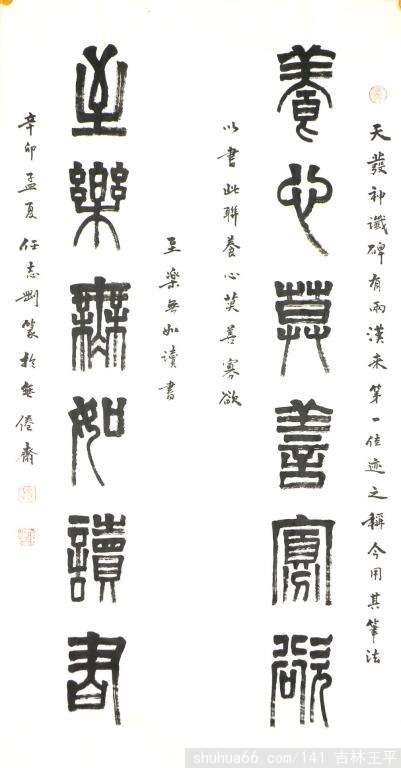 天發神讖碑有兩漢來第一佳迹之稱今用其筆法
養心莫善寡欲
以書此聯養心莫善寡欲
至樂無如讀書
至樂無如讀書
辛卯孟夏任志剛篆於無倦齋
shuhua66.com/141 吉林王平